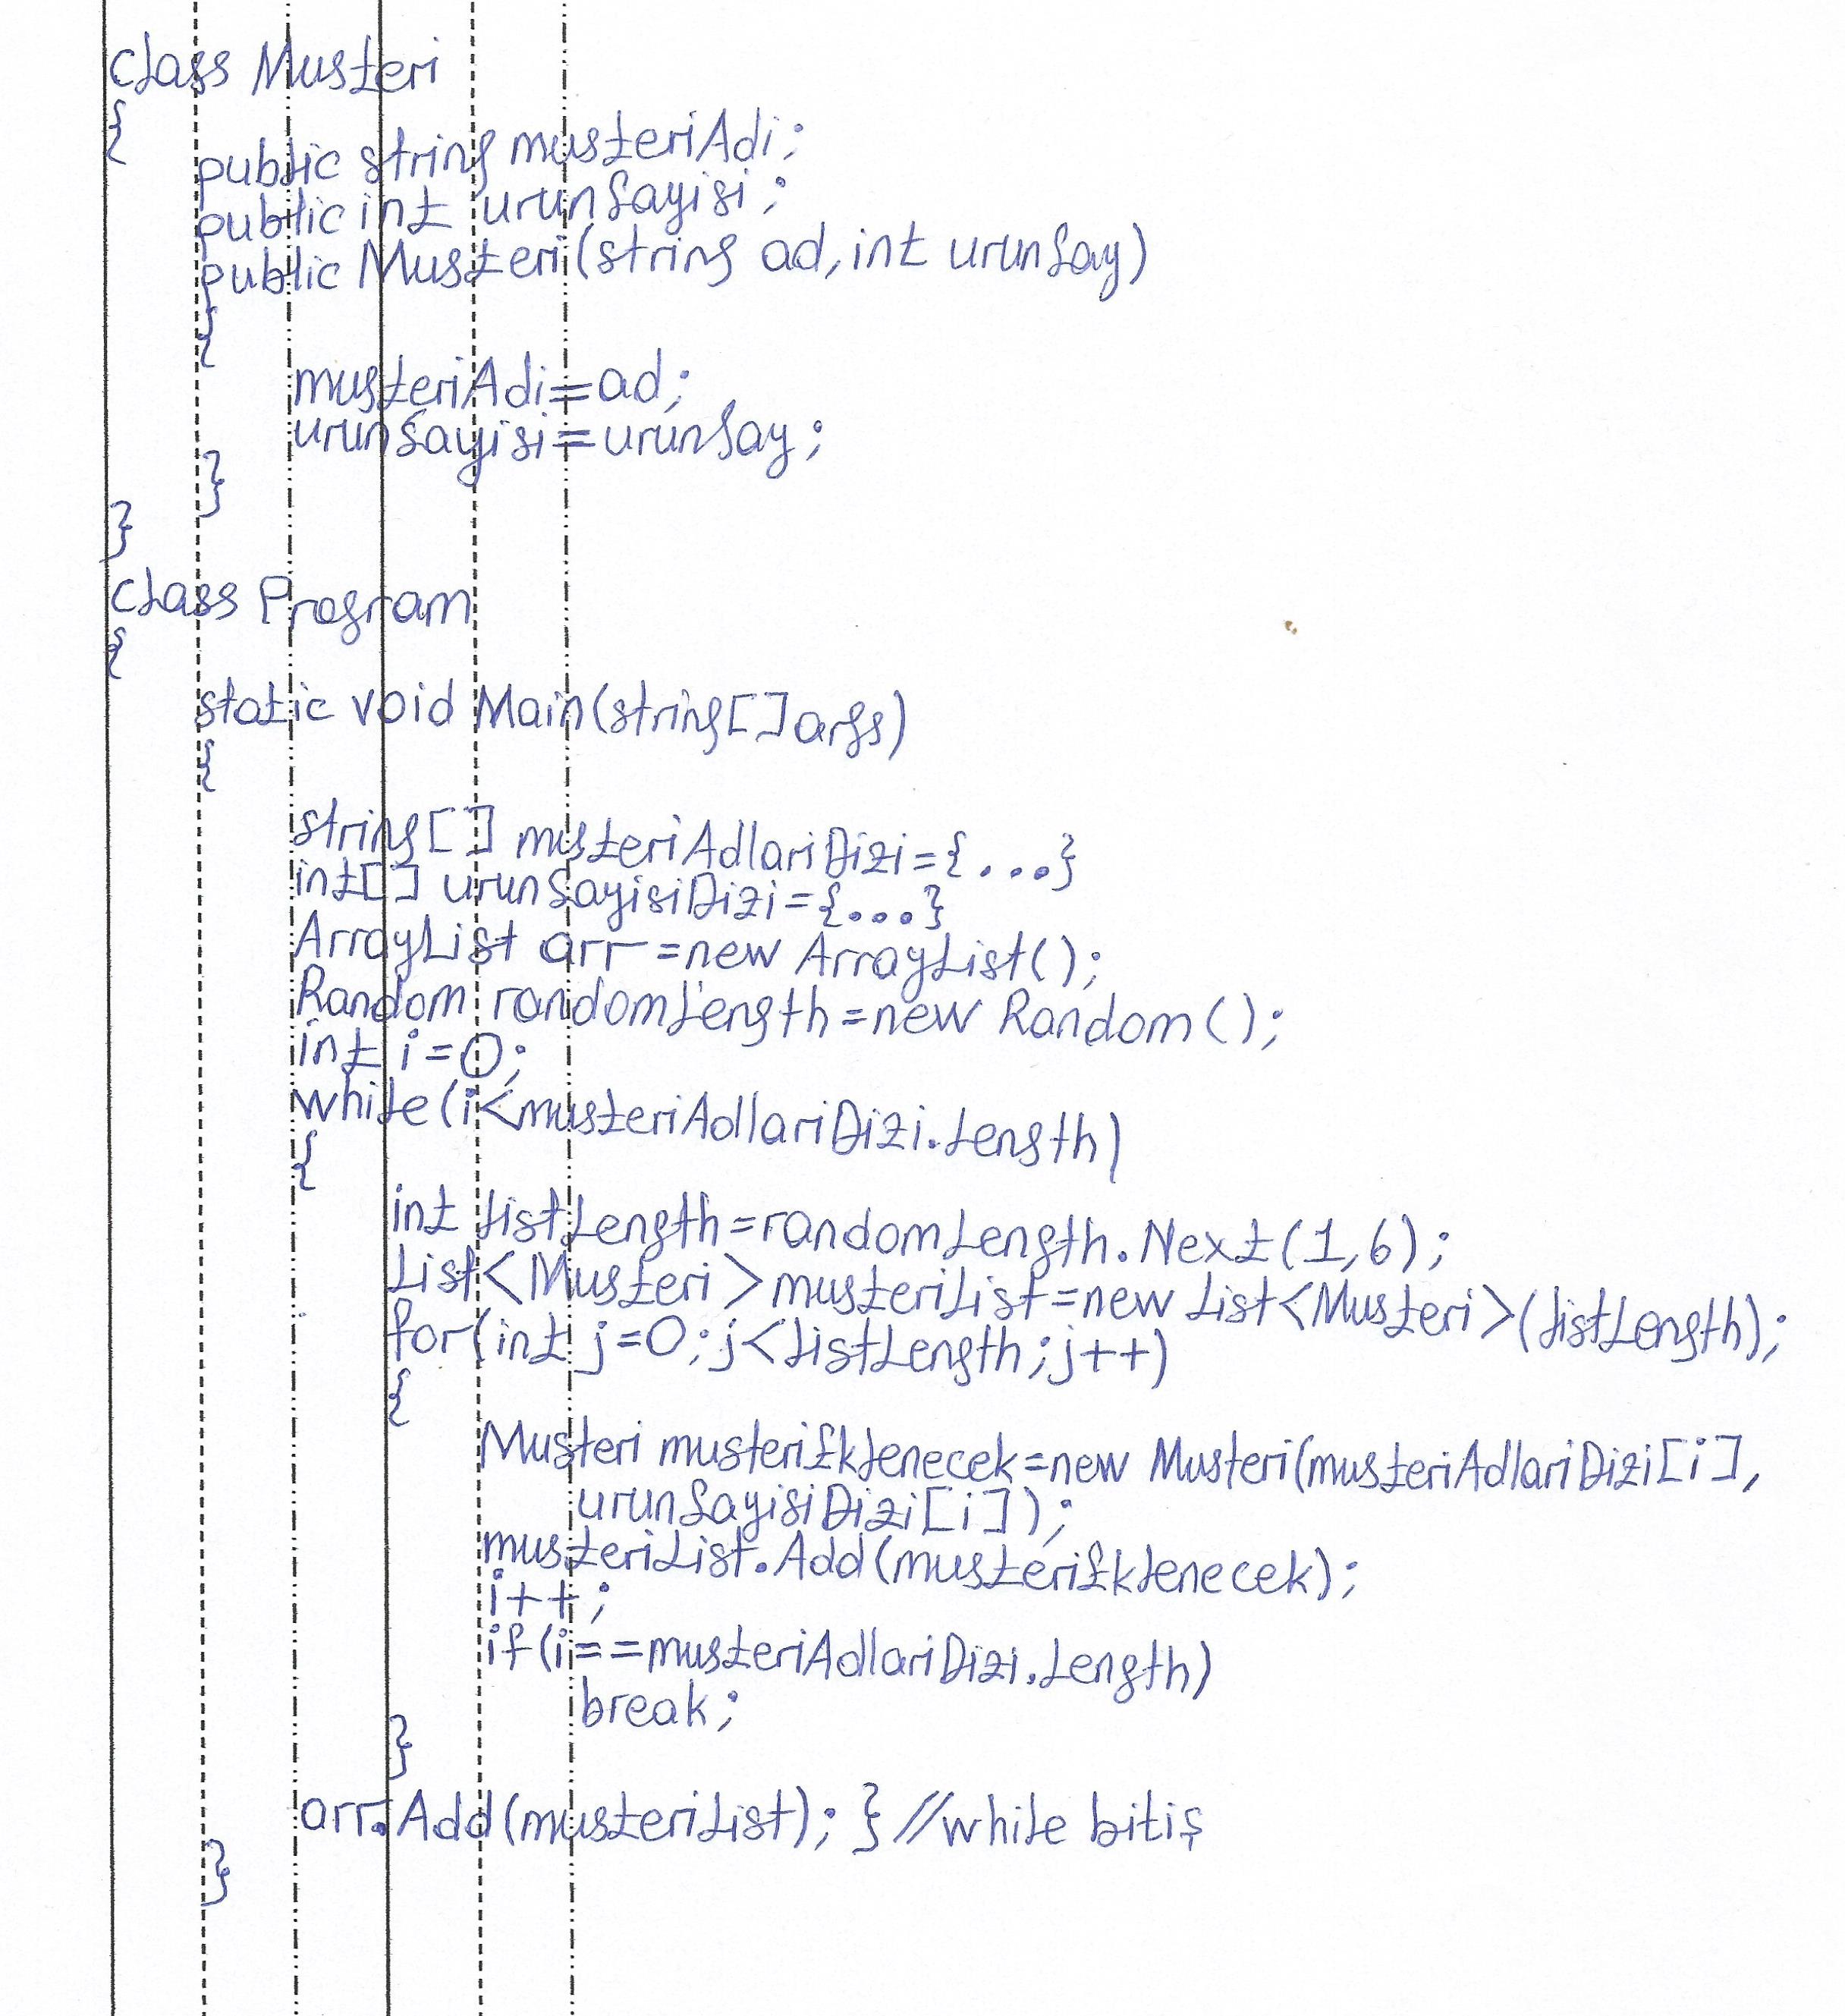 class Musteri
{
public string musteriAdi;
public int urunSayisi;
public Musteri(string ad, int urunSay)
{
musteriAdi=ad;
urunSayisi=urunSay;
}
}
class Program
{
static void Main(string[] args)
{
string[] musteriAdlariDizi={...}
int[] urunSayisiDizi={...}
ArrayList arr=new ArrayList();
Random randomLength=new Random();
int i=0;
while(i<musteriAdlariDizi.Length)
{
int listLength=randomLength.Next(1,6);
List<Musteri>musteriList=new List<Musteri>(listLength);
for(int j=0;j<listLength;j++)
{
Musteri musteriEklenecek=new Musteri(musteriAdlariDizi[i],
urunSayisiDizi[i]);
musteriList.Add(musteriEklenecek);
i++;
if(i==musteriAdlariDizi.Length)
break;
}
arr.Add(musteriList); } //while bitiş
}